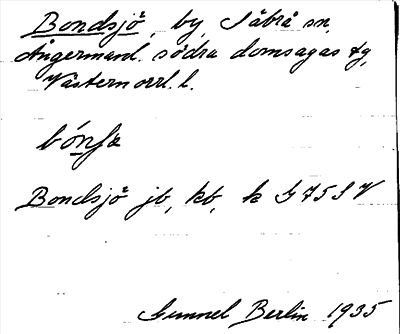 Bondsjö, by, Säbrå sn,
Ångermanl. södra domsagas tg,
Västernorrl. l.
Bondsjö jb, kb, k G 75 S V
Gunnel Berlin 1935